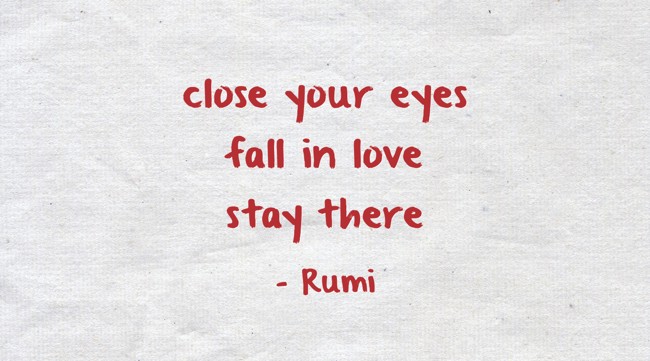 close your eyes
fall in love
stay there
- Rumi